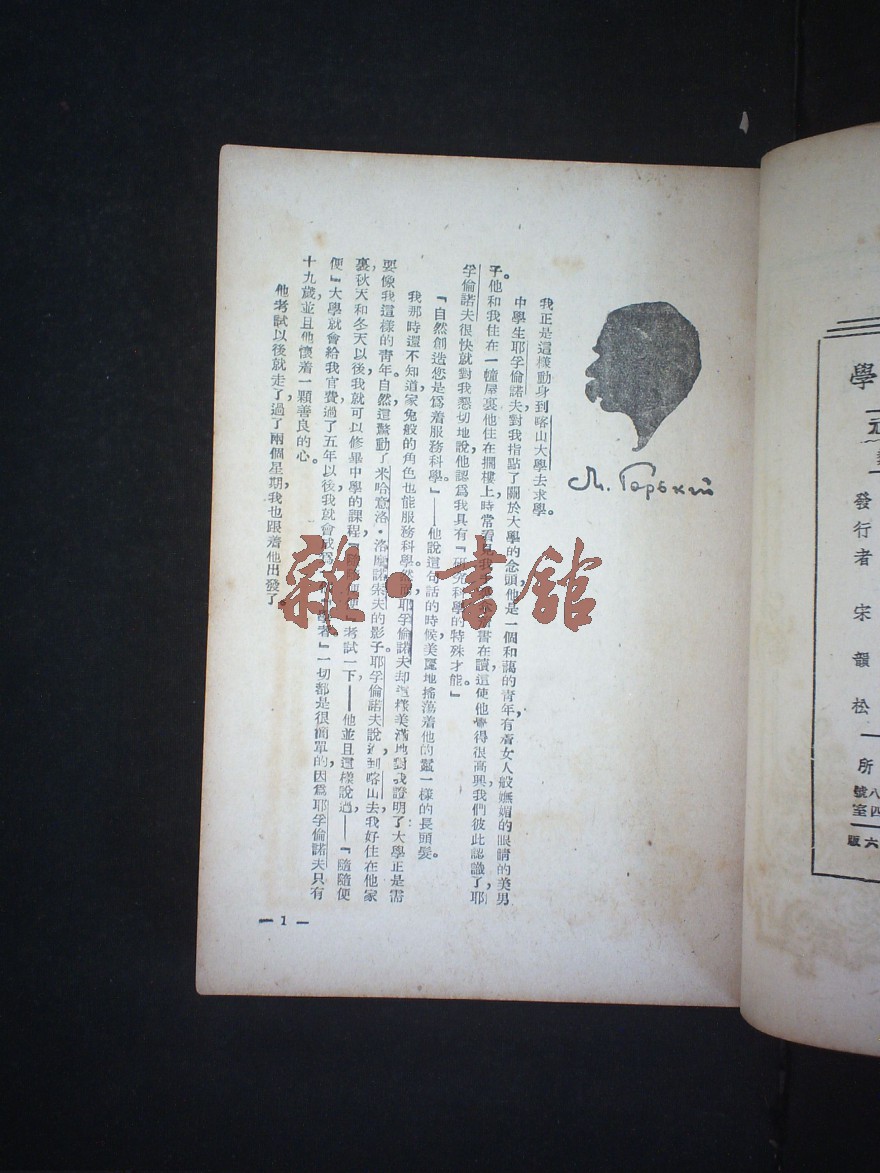 М. Горький
我正是這樣動身到喀山大學去求學。
中學生耶孚倫諾夫對我指點了關於大學的念頭，他是一個和藹的青年，有着女人般嫵媚的眼睛的美男
子。他和我住在一幢屋裏，他住在擱樓上，時常看見我 書在讀，這使他覺得很高興，我們彼此認識了，耶
孚倫諾夫很快就對我懇切地說，他認爲我具有『研究科學的特殊才能。』
『自然創造您是爲着服務科學。』——他說這句話的時候，美麗地搖蕩着他的鬣一樣的長頭髮。
我那時還不知道，家兔般的角色也能服務科學，然而耶孚倫諾夫却這樣美滿地對我證明了：大學正是需
要像我這樣的青年。自然，這驚動了米哈意洛・洛摩諾索夫的影子。耶孚倫諾夫說，到喀山去，我好住在他家
裏，秋天和冬天以後，我就可以修畢中學的課程，『 』考試一下——他並且這樣說過——『隨隨便
便』大學就會給我官費，過了五年以後，我就會成爲 者』一切都是很簡單的，因爲耶孚倫諾夫只有
十九歲，並且他懷着一顆善良的心。
他考試以後就走了，過了兩個星期，我也跟着他出發了。
— 1 —
雜・書館
學
發行者 宋韻松
所
八號
四室
六版